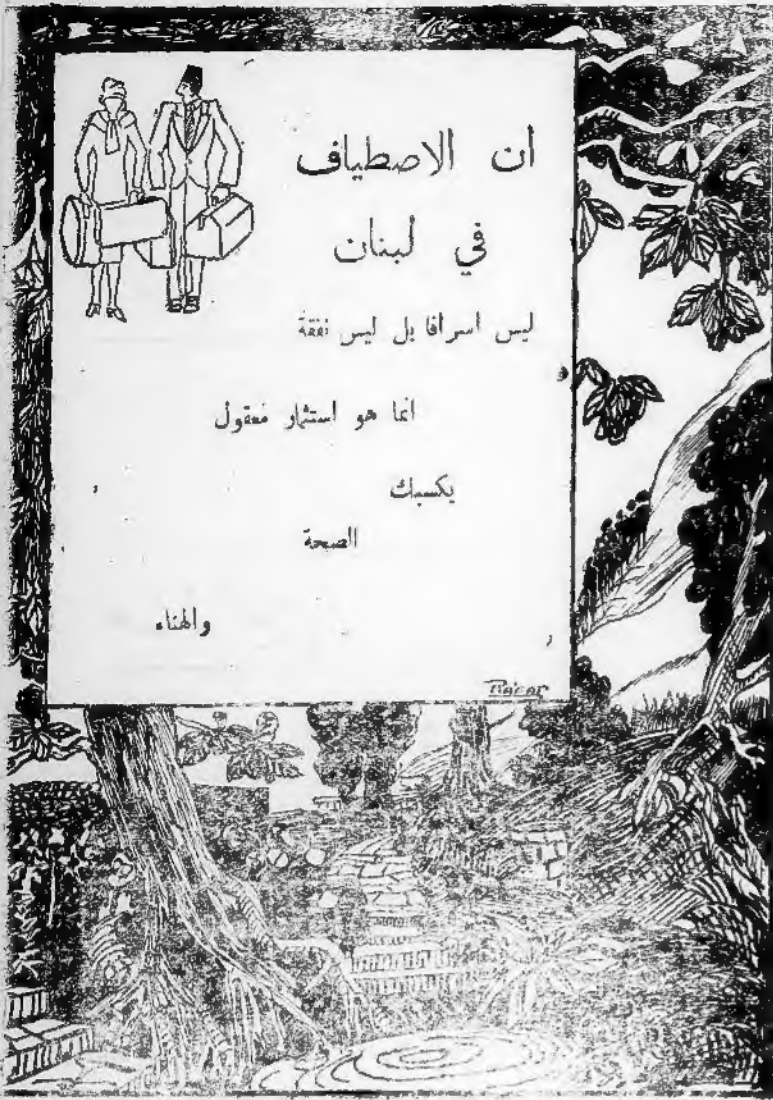 ان الاصطياف
في لبنان
ليس اسرافا بل ليس نفقةً
انما هو استثمار معقول
يكسبك
الصحة
والهناء